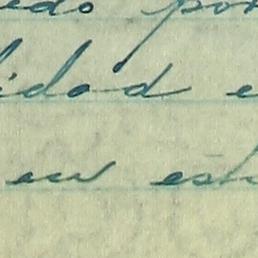 edo por
lidad e
en est